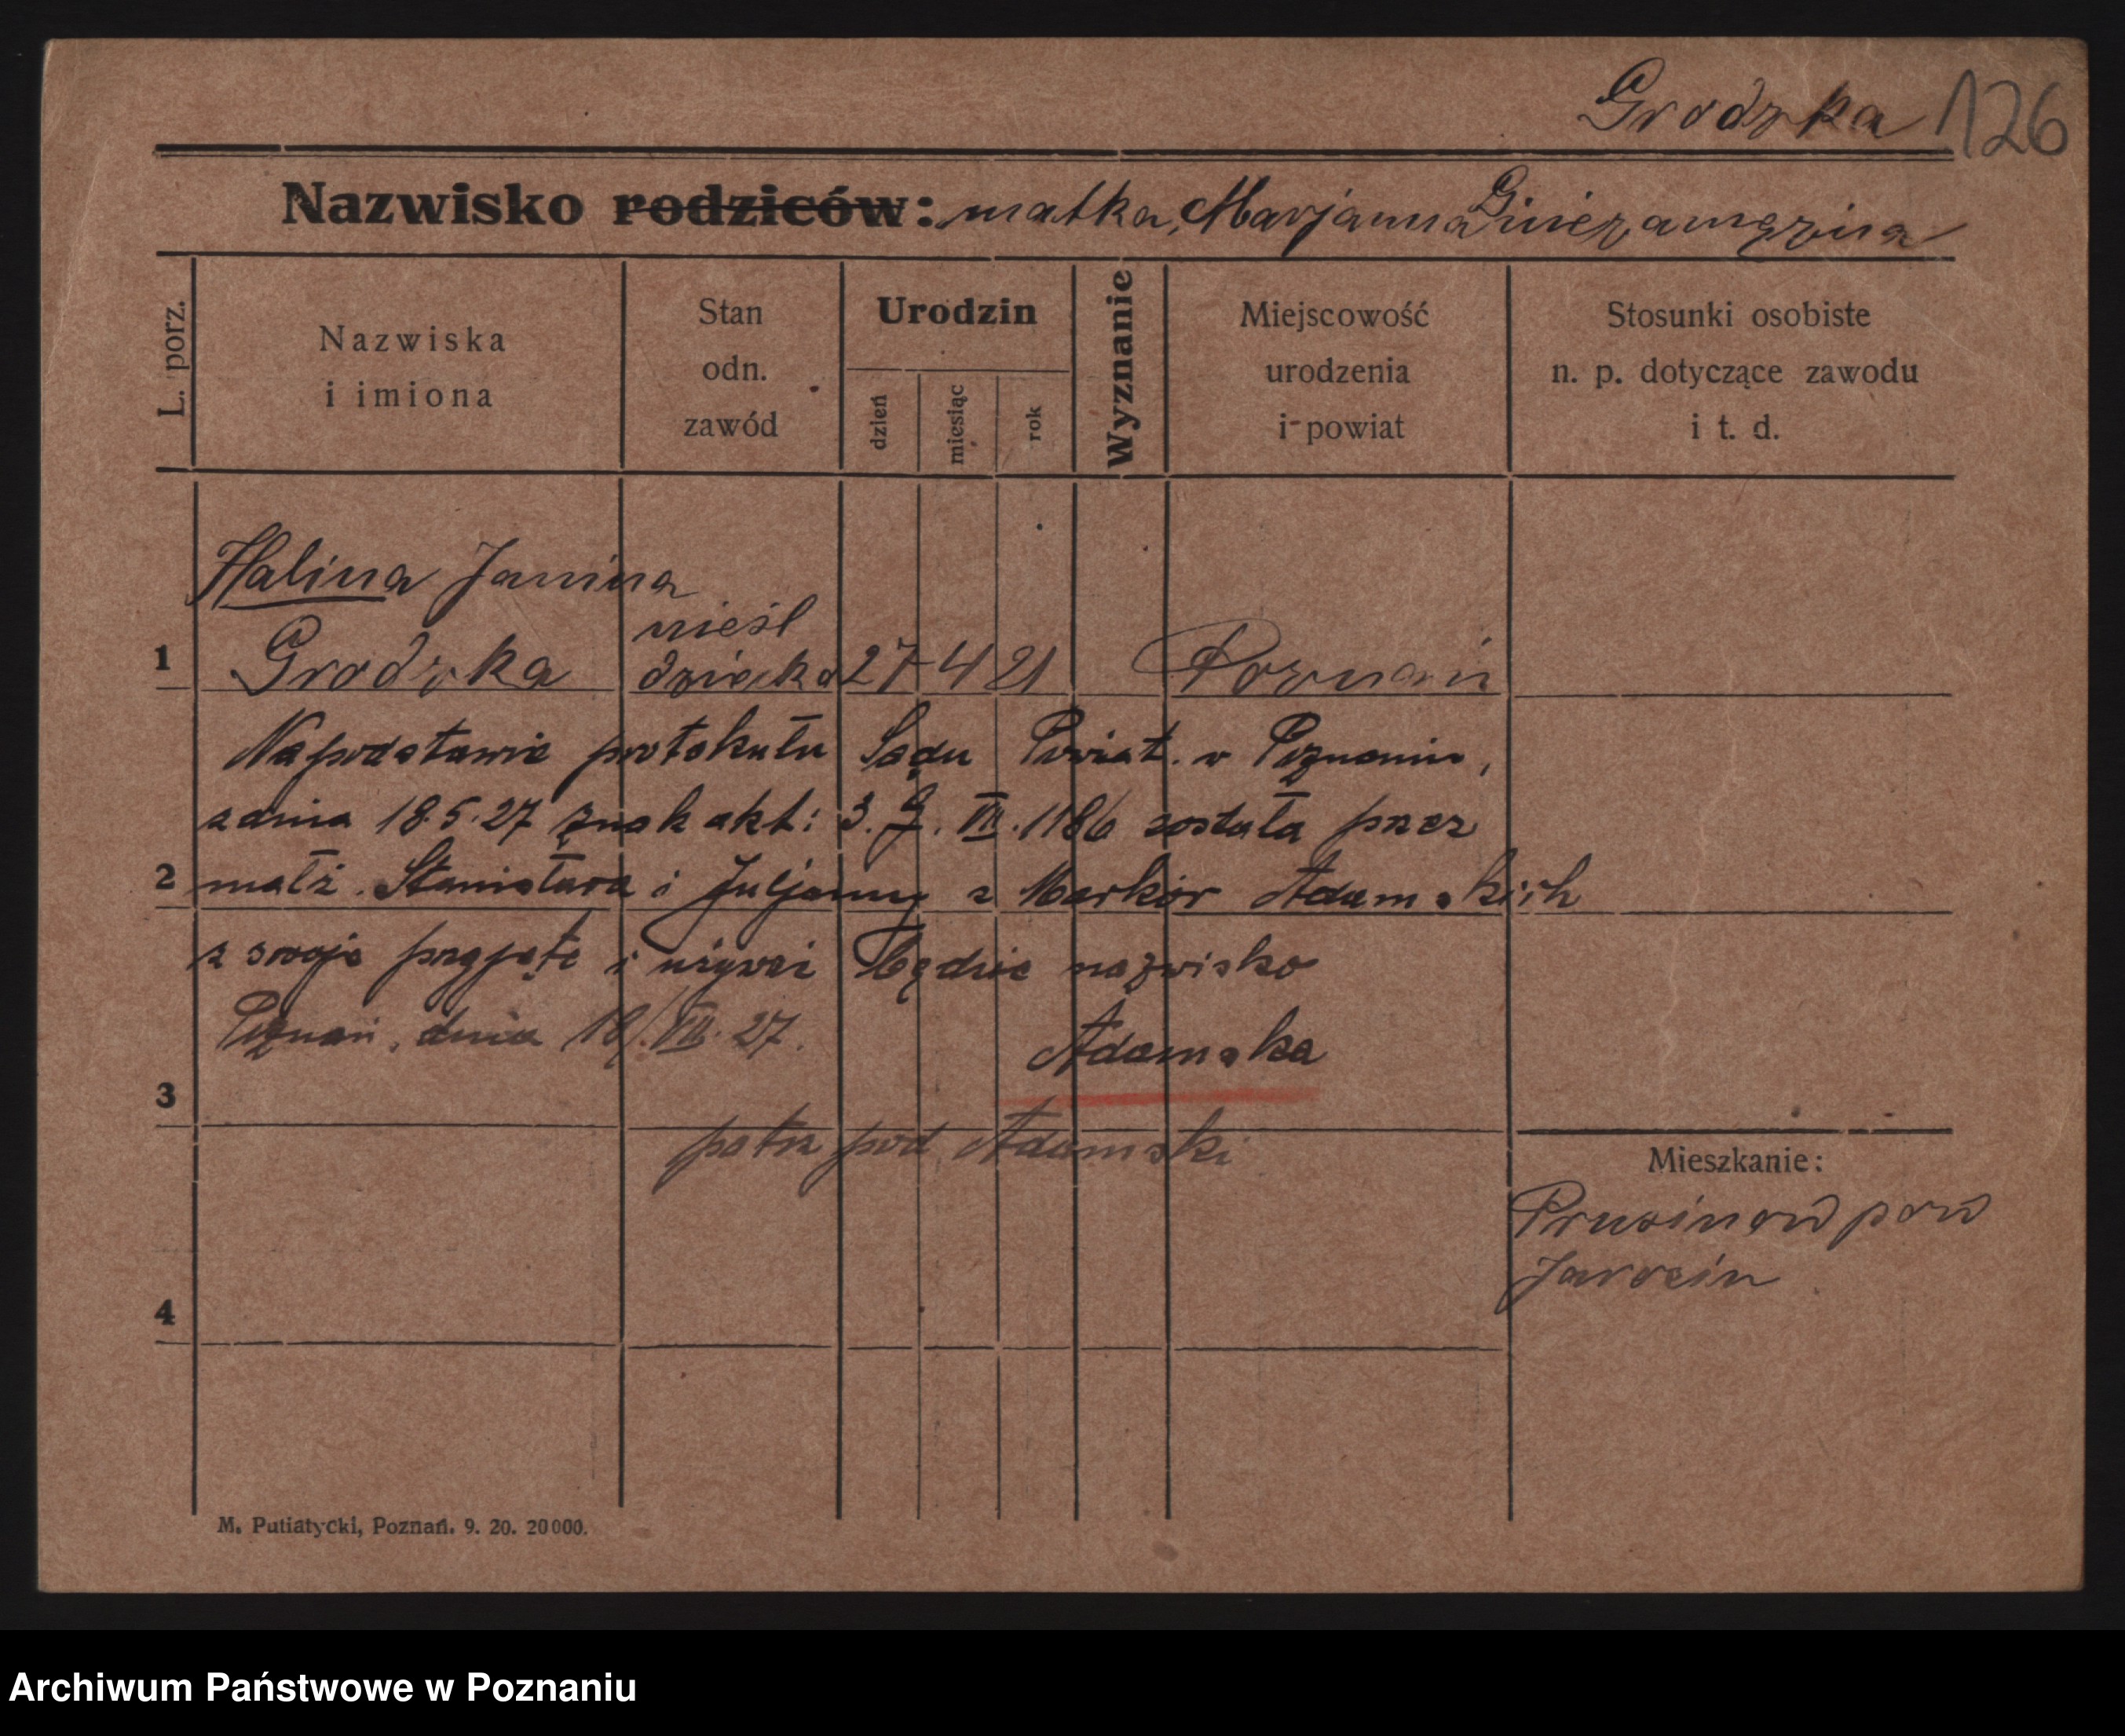 Grodzka 126
Nazwisko rodziców: matka, Marjanna G niezamężna
L. porz.
Nazwiska
i imiona
Stan
odn.
zawód
Urodzin
dzień
miesiąc
rok
Wyznanie
Miejscowość
urodzenia
i powiat
Stosunki osobiste
n. p. dotyczące zawodu
i t. d.
Halina Janina
1 Grodzka nieśl dziecko 27 4 21 Poznań
Na podstawie protokułu Sądu Powiat. w Poznaniu,
z dnia 18.5.27 znak akt: 3. J. VII. 1186 została przez
2 małż. Stanisława i Juljanny z Marków Adamskich
z swoje przyjęte i używać będzie nazwisko
Poznań, dnia 18/VII. 27. Adamska
3
patrz pod Adamski
Mieszkanie:
Prusinów pow
Jarocin
4
M. Putiatycki, Poznań. 9. 20. 20000.
Archiwum Państwowe w Poznaniu